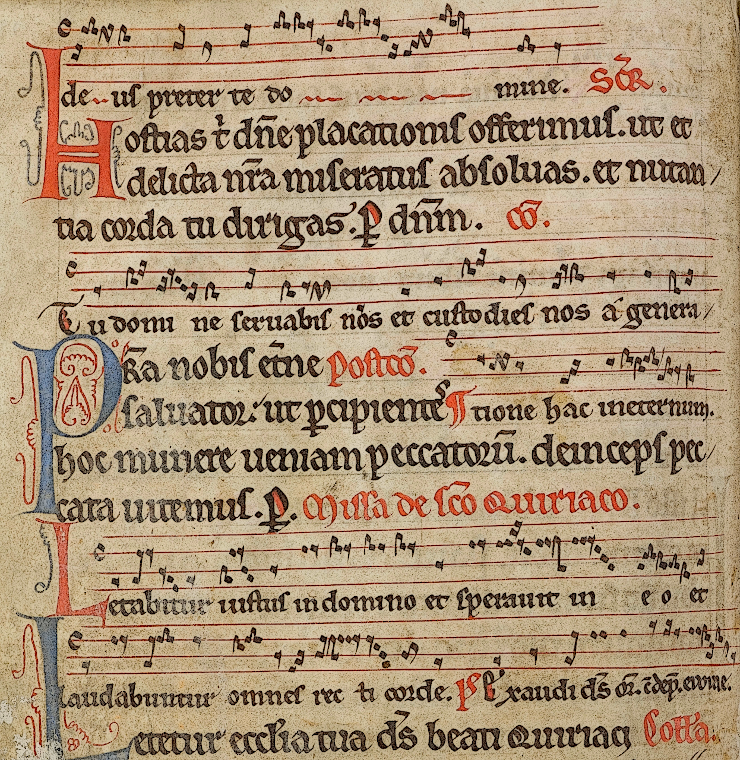 de us preter te do mine. Scr̄.
Hostias t̄ dn̄e placationis offerimus. ut et
delicta nr̄a miseratus absoluas. et nutan/
tia corda tu dirigas. P dn̄m. cō.
Tu domi ne seruabis nos et custodies nos a genera/
Pr̄a nobis et̄ne postcō.
saluator. ut p̄cipientes ¶ tione hac ineternum.
hoc munere ueniam peccatorū. deinceps pec/
cata uitemus. P. Missa de sc̄o Quiriaco.
Letabitur iustus in domino et sperauit in e o et
laudabuntur omnes rec ti corde. ps Exaudi ds̄ or̄.
Letetur eccl̄ia tua ds̄ beati Quiriaci Coll̄a.